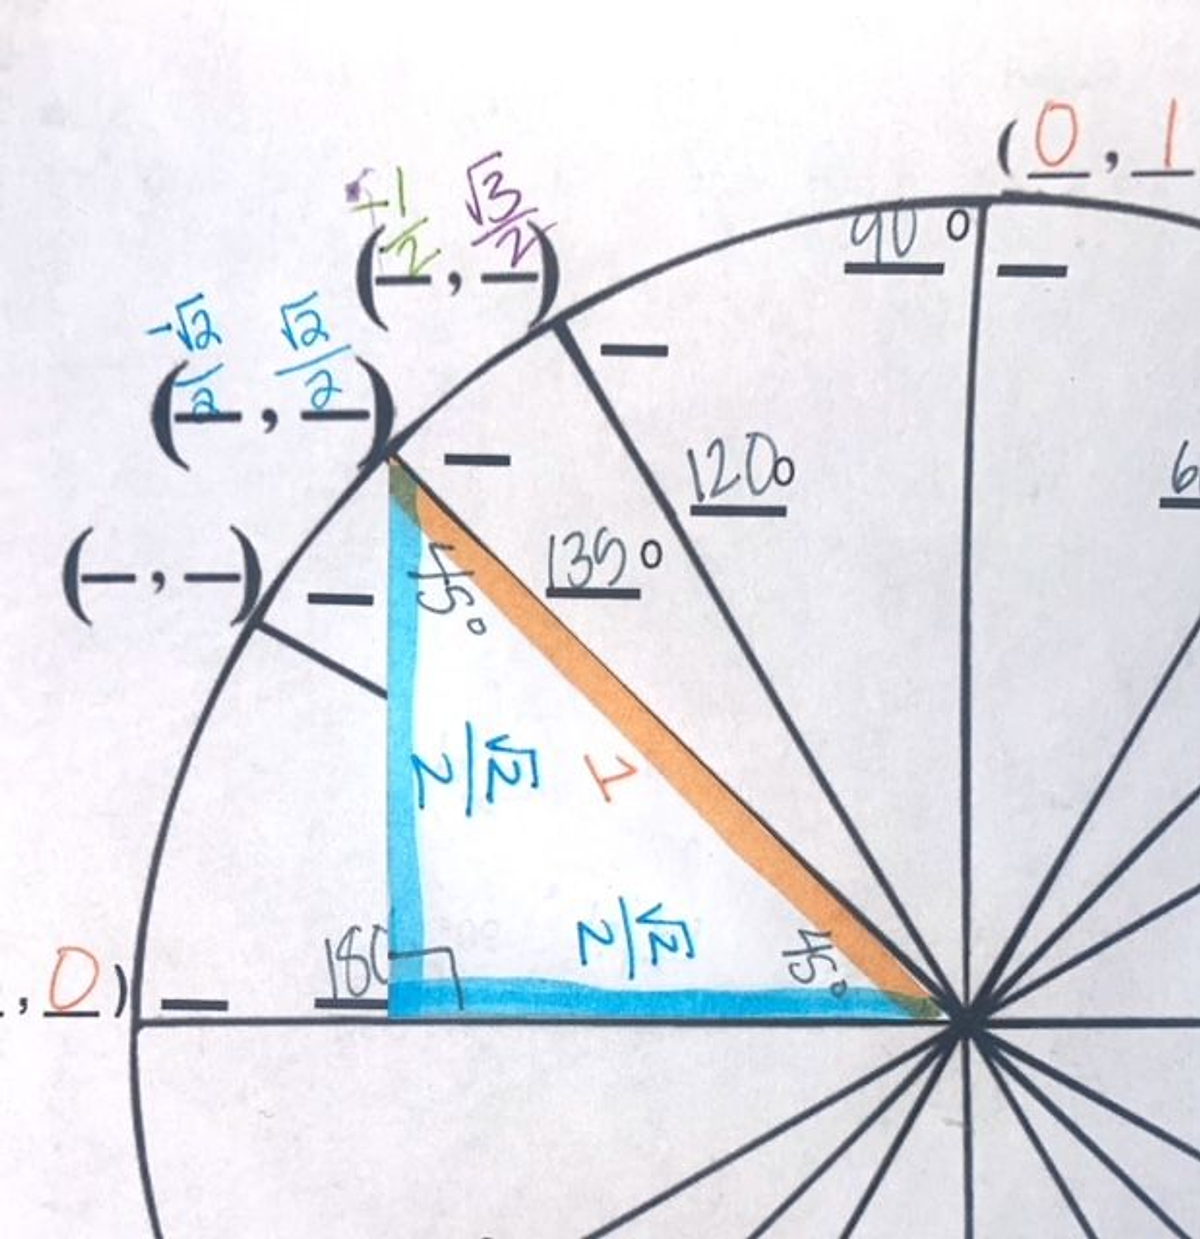 (0, 1
90°
(-1/2, √3/2)
(-√2/2, √2/2)
120°
6
135°
(_, _)
45°
√2/2
1
√2/2
45°
180
, 0)